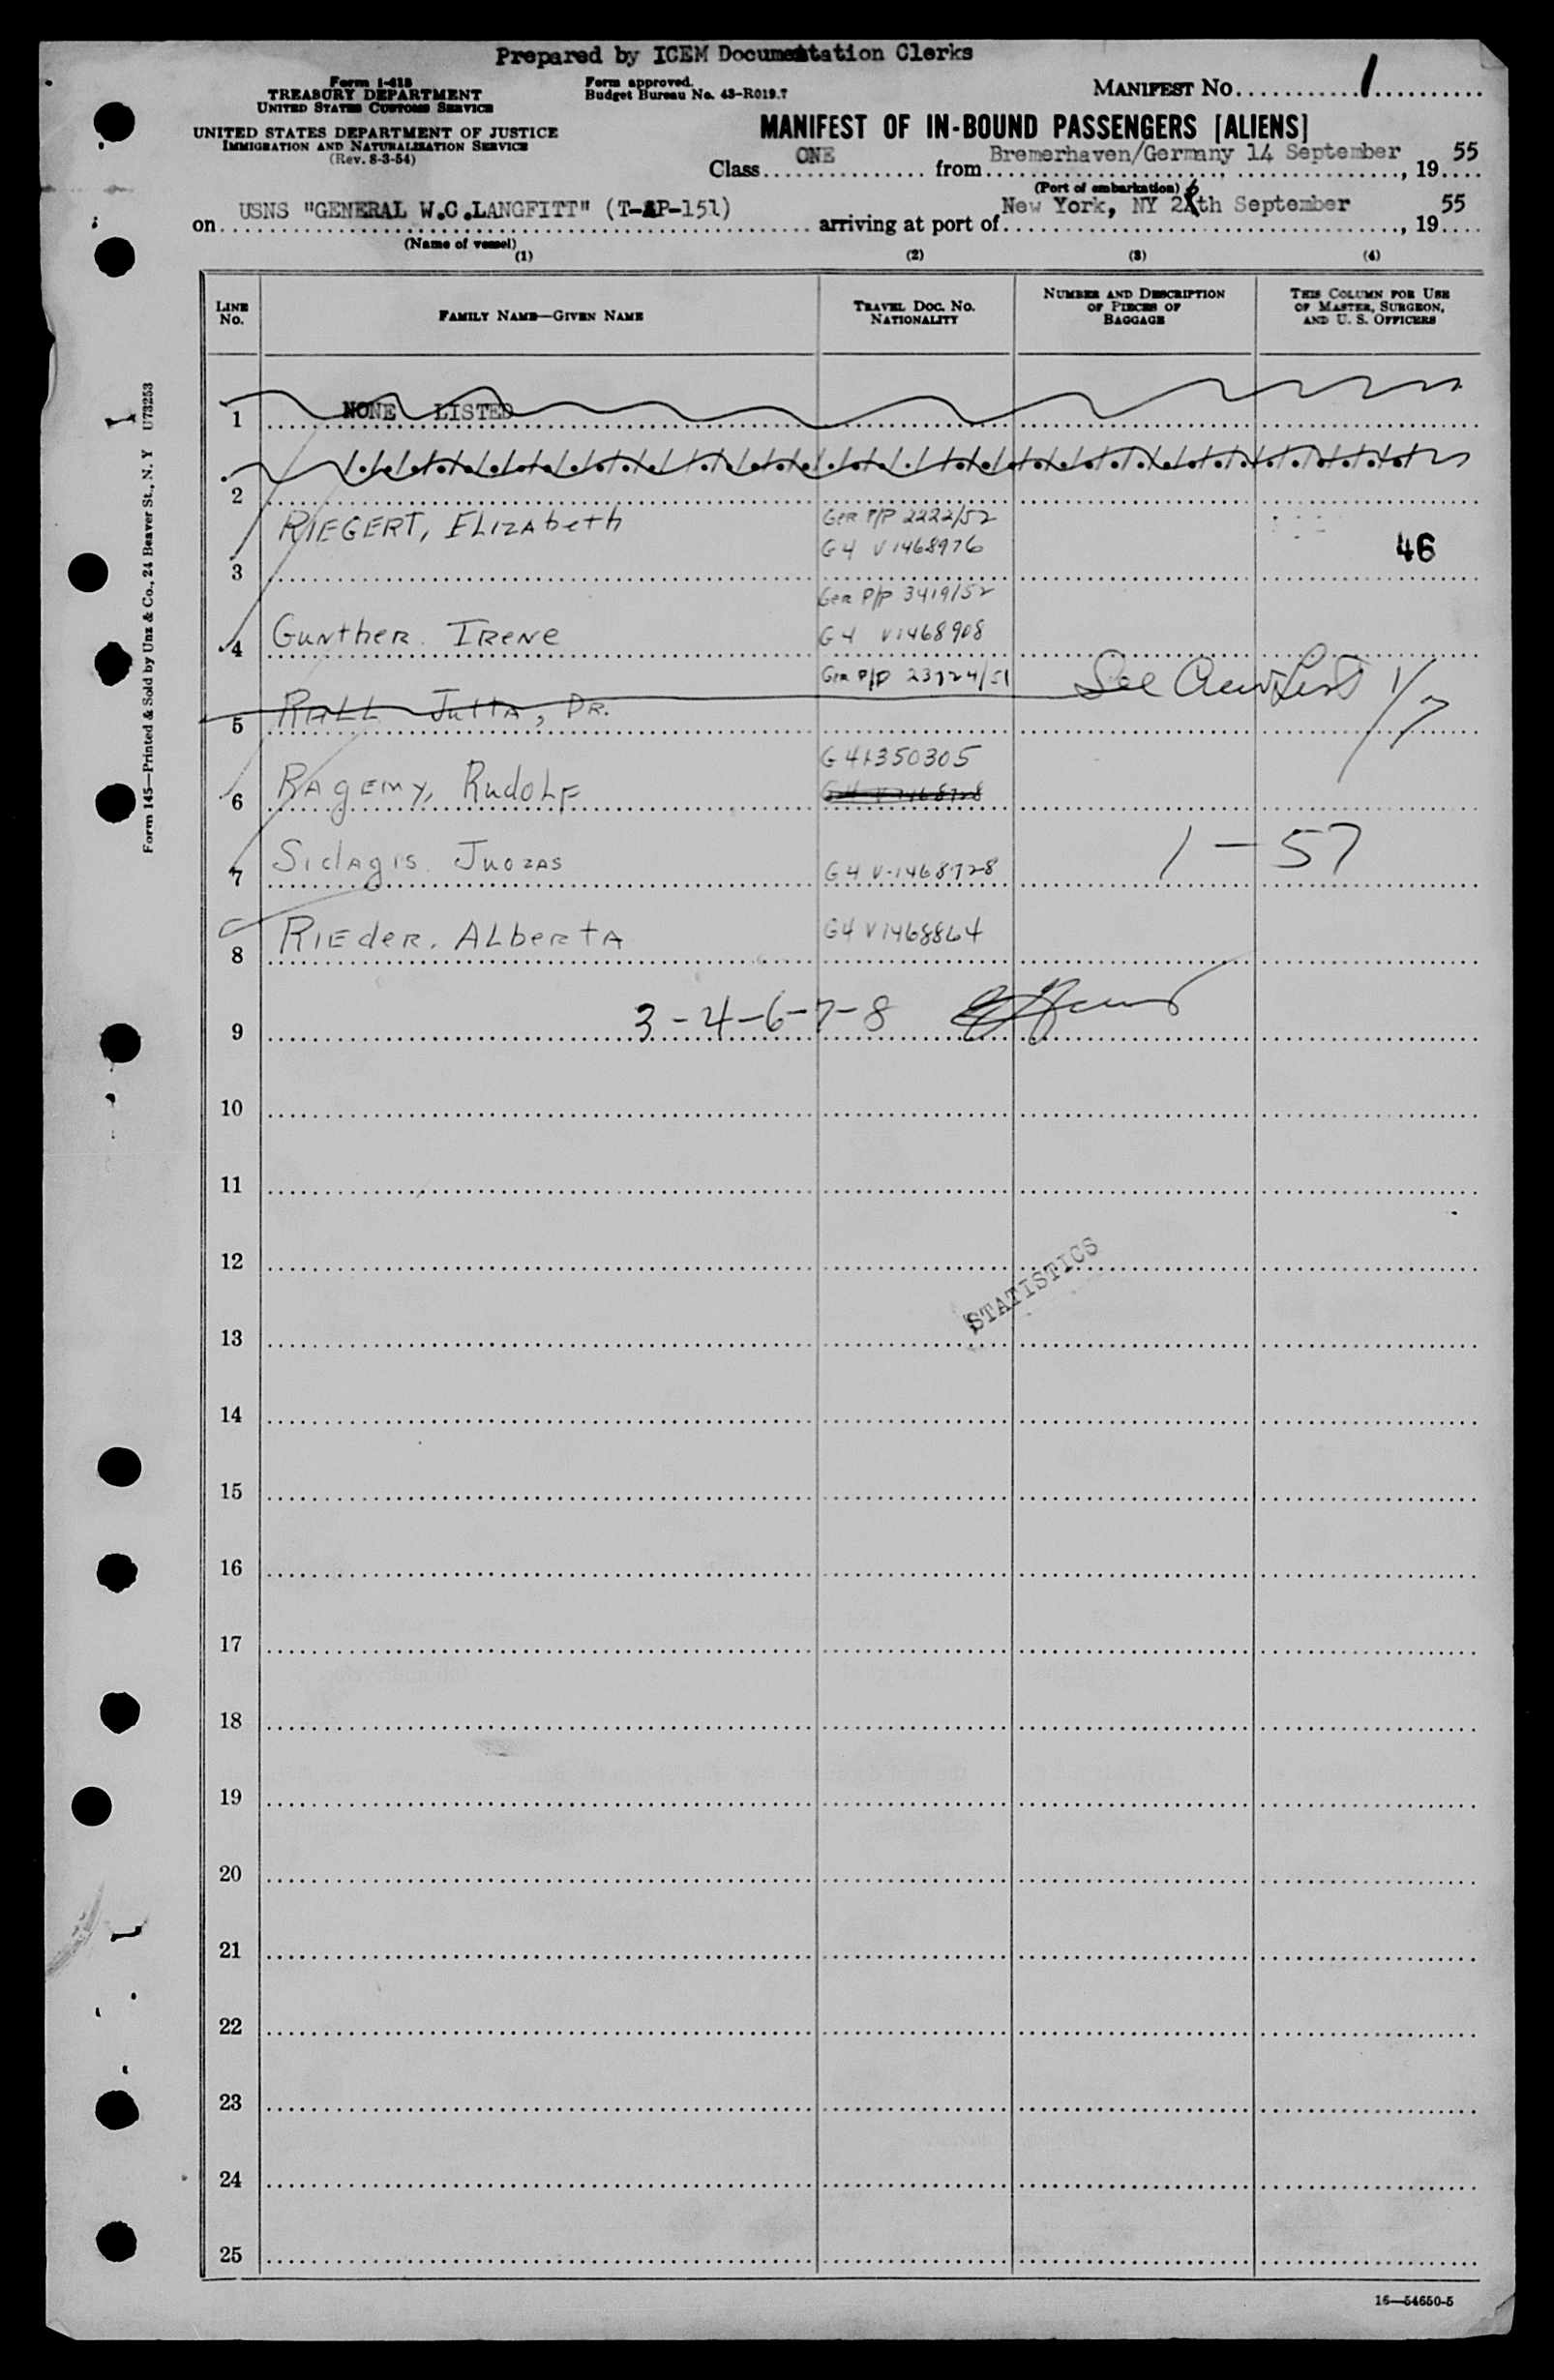 Prepared by ICEM Documentation Clerks
Form I-418
TREASURY DEPARTMENT
UNITED STATES CUSTOMS SERVICE
Form approved.
Budget Bureau No. 43-R019.7
MANIFEST NO. 1
UNITED STATES DEPARTMENT OF JUSTICE
IMMIGRATION AND NATURALIZATION SERVICE
(Rev. 8-3-54)
MANIFEST OF IN-BOUND PASSENGERS [ALIENS]
Class ONE from Bremerhaven/Germany 14 September, 19 55
(Port of embarkation)
on USNS "GENERAL W.C.LANGFITT" (T-AP-151) arriving at port of New York, NY 26th September, 19 55
(Name of vessel)
(1) (2) (3) (4)
LINE NO.
FAMILY NAME—GIVEN NAME
TRAVEL DOC. NO. NATIONALITY
NUMBER AND DESCRIPTION OF PIECES OF BAGGAGE
THIS COLUMN FOR USE OF MASTER, SURGEON, AND U. S. OFFICERS
1 NONE LISTED
2
3 RIEGERT, ELIZAbeth Ger P/P 2222/52 G4 V1468976 46
4 GuntheR. IRENE Ger P/P 3419/52 G4 V1468908
5 RALL Jutta, DR. Ger P/P 23724/51 See Crew List 1/7
6 RAgEmy, RudoLF G41350305 G4 V1468728
7 SidAgis. JuozAs G4 V-1468728 1-57
8 RIEdeR. ALbeRtA G4 V1468864
9 3-4-6-7-8
10
11
12
STATISTICS
13
14
15
16
17
18
19
20
21
22
23
24
25
16—54650-5
Form 145—Printed & Sold by Unz & Co., 24 Beaver St., N. Y U73253